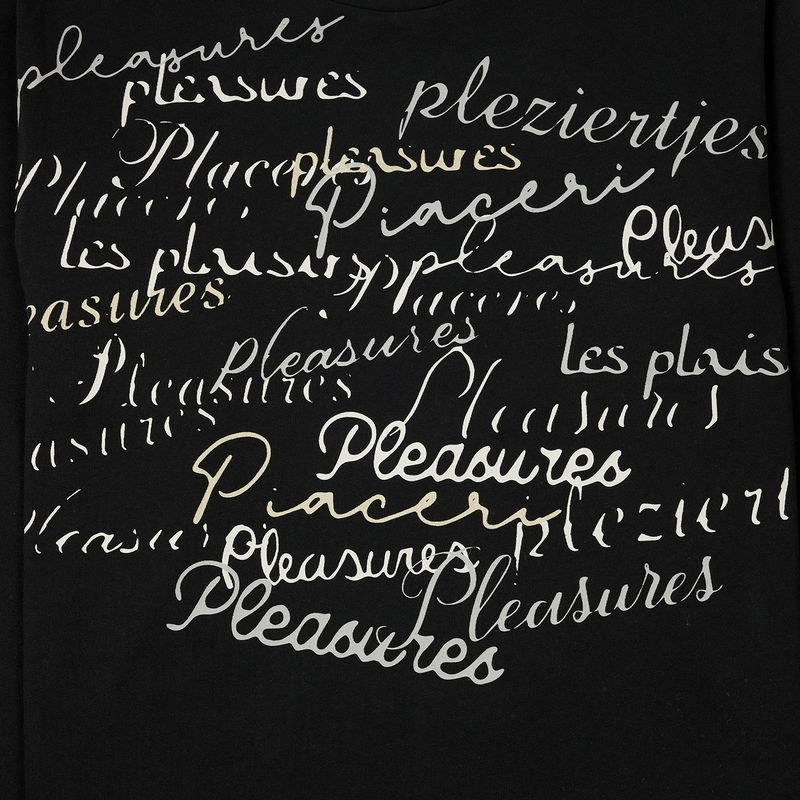 pleasures
pleisures
pleziertjes
Placeres
pleisures
Piaceri
Pleas
les plaisirs
pleasures
Placeres
easures
Pleasures
les plais
Pleasures
Pleasures
asures
Pleasures
Piaceri
pleziert
Pleasur
pleasures
Pleasures
Pleasures